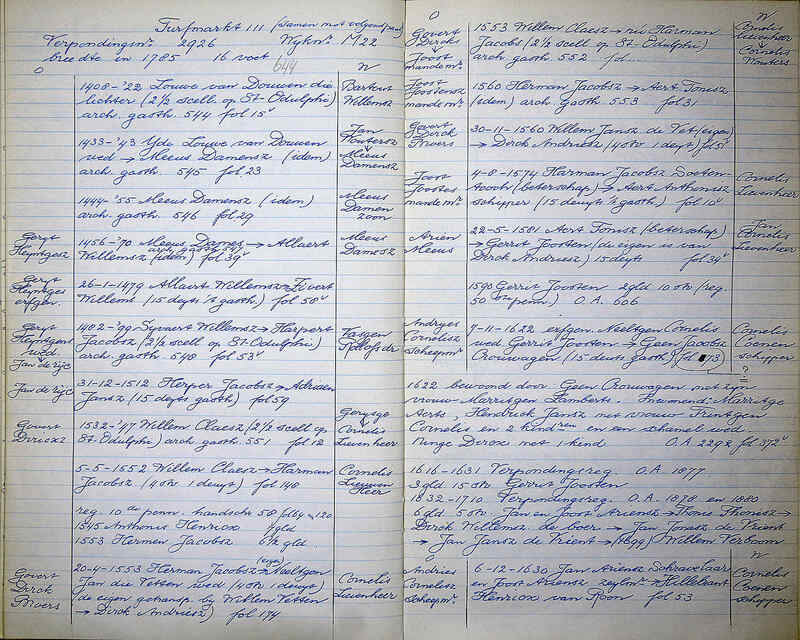 Turfmarkt 111 (samen met volgend pand)
Verpondingsnr. 2926 Wijknr. M22
breedte in 1785 16 voet
644
O W
1408-'22 Louwe van Douwen die
lichter (2½ scell. op St-Odulphi)
arch. gasth. 544 fol 15v
Bartout
Willemsz
1433-'43 Yde Louwe van Douwen
wed → Meeus Damensz (idem)
arch. gasth. 545 fol 23
Jan
Woutersz
↓
Meeus
Damensz
1444-'55 Meeus Damensz (idem)
arch. gasth. 546 fol 29
Meeus
Damen
zoon
Geryt
Heyntgesz
1456-'70 Meeus Dames → Allaert
Willemsz (idem) fol 39v
Meeus
Damesz
Geryt
Heyntges
erfgen.
26-1-1479 Allaert Willemsz → Sivert
Willems (15 deyts 't gasth.) fol 58v
Geryt
Heyntgesz
wed.
Jan de rijc
1482-'99 Syvaert Willemsz → Harpert
Jacobsz (2½ scell. op St-Odulphi)
arch. gasth. 548 fol 53v
Jan de rijc
31-12-1512 Herper Jacobsz → Adriaen
Jansz (15 deyts gasth) fol 59
Govert
Diricxz
1532-'47 Willem Claesz (2½ scell op
St-Odulphi) arch. gasth. 551 fol 12
Cornelis
Lievenheer
5-5-1552 Willem Claesz → Harman
Jacobsz (40 st 1 deuyt) fol 148
Cornelis
Lieven
Heer
reg. 10de penn. handschr 58 fol 64 120
1545 Anthonis Henricx gld
1553 Hermen Jacobsz 6½ gld.
Govert
Dirck
Brvers
20-4-1553 Herman Jacobsz → Neeltgen
Jan die Vetten wed (40 st 1 deuyt)
de eigen getransp. bij Willem Vetten
→ Dirck Andriesz) fol 174
Cornelis
Lievenheer
O W
Govert
Dircks
↓
Joost
mandemr.
1553 Willem Claesz → nu Harman
Jacobs (2½ scell op St-Odulphi)
arch. gasth. 552 fol ...
Cornelis
Lievenheer
↓
Cornelis
Wouters
Joost
Joostensz
mandemr.
1560 Herman Jacobsz → Aert Tonisz
(idem) arch. gasth. 553 fol 31
Govert
Dirck
Brvers
30-11-1560 Willem Jansz de Vet (eigen)
→ Dirck Andriesz (40 st 1 deyt) fol 5v
Joost
Joosten
mandemr.
4-8-1574 Harman Jacobsz
(beterschap) → Aert Anthonisz
schipper (15 deuyts 't gasth) fol 10v
Cornelis
Lievenheer
Arien
Meeus
22-5-1581 Aert Tonisz (beterschap)
→ Gerrit Joosten (de eigen is van
Dirck Andriesz) 15 deyts fol 34v
Jan
Cornelis
Lievenheer
1590 Gerrit Joosten 2 gld 10 st (reg.
50ste penn.) O.A. 606
Andryes
Cornelisz
scheepmr.
9-11-1622 erfgen. Neeltgen Cornelis
wed Gerrit Joosten → Geen Jacobsz
Crouwagen (15 deuts gasth) (fol 73)
Cornelis
Coenen
schipper
?
1622 bewoond door Geen Crouwagen met zyn
vrouw Marritgen Lamberts. Inwonend: Marritge
Aerts, Hendrick Jansz met vrouw Trentgen
Cornelis en 2 kinderen en een schamel wed.
Ninge Dircx met 1 kind O.A. 2292 fol 372v
1616-1631 Verpondingsreg. O.A. 1877
3 gld 15 st Gerrit Joosten
1832-1710 Verpondingsreg. O.A. 1878 en 1880
6 gld 5 st. Jan en Joost Ariensz → Thonis Thonisz →
Dirck Willemsz de boer → Jan Jonesz de Vrient
→ Jan Jansz de Vrient → (1699) Willem Verboom
O W
Andries
Cornelisz
scheepmr.
6-12-1630 Jan Ariensz Schravelaar
en Joost Ariensz zeylmr → Hillebrant
Henricx van Roon fol 53
Cornelis
Coenen
schipper